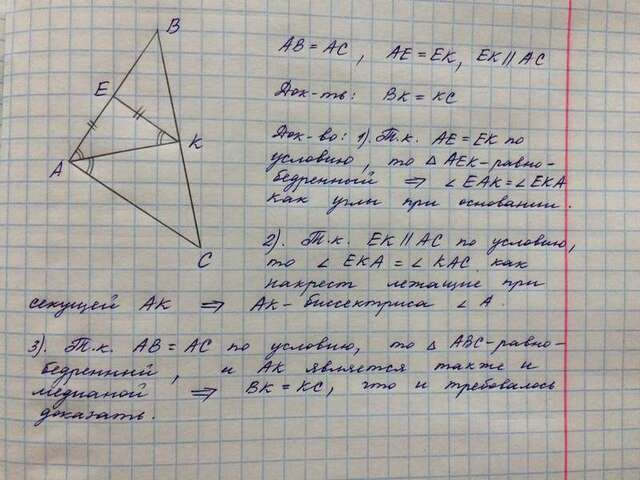 AB = AC, AE = EK, EK || AC
Док-ть: BK = KC
Док-во: 1). Т.к. AE = EK по
условию, то △ AEK - равно-
бедренный ⇒ ∠ EAK = ∠ EKA
как углы при основании.
2). Т.к. EK || AC по условию,
то ∠ EKA = ∠ KAC как
накрест лежащие при
секущей AK ⇒ AK - биссектриса ∠ A.
3). Т.к. AB = AC по условию, то △ ABC - равно-
бедренный, и AK является также и
медианой ⇒ BK = KC, что и требовалось
доказать.
B
E
K
A
C